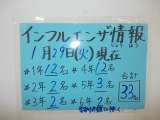 インフルエンザ情報
じょうほう
1月29日(火)現在
*1年 12名 *4年 12名
*2年 2名 *5年 3名
*3年 2名 *6年 2名
合計
33名